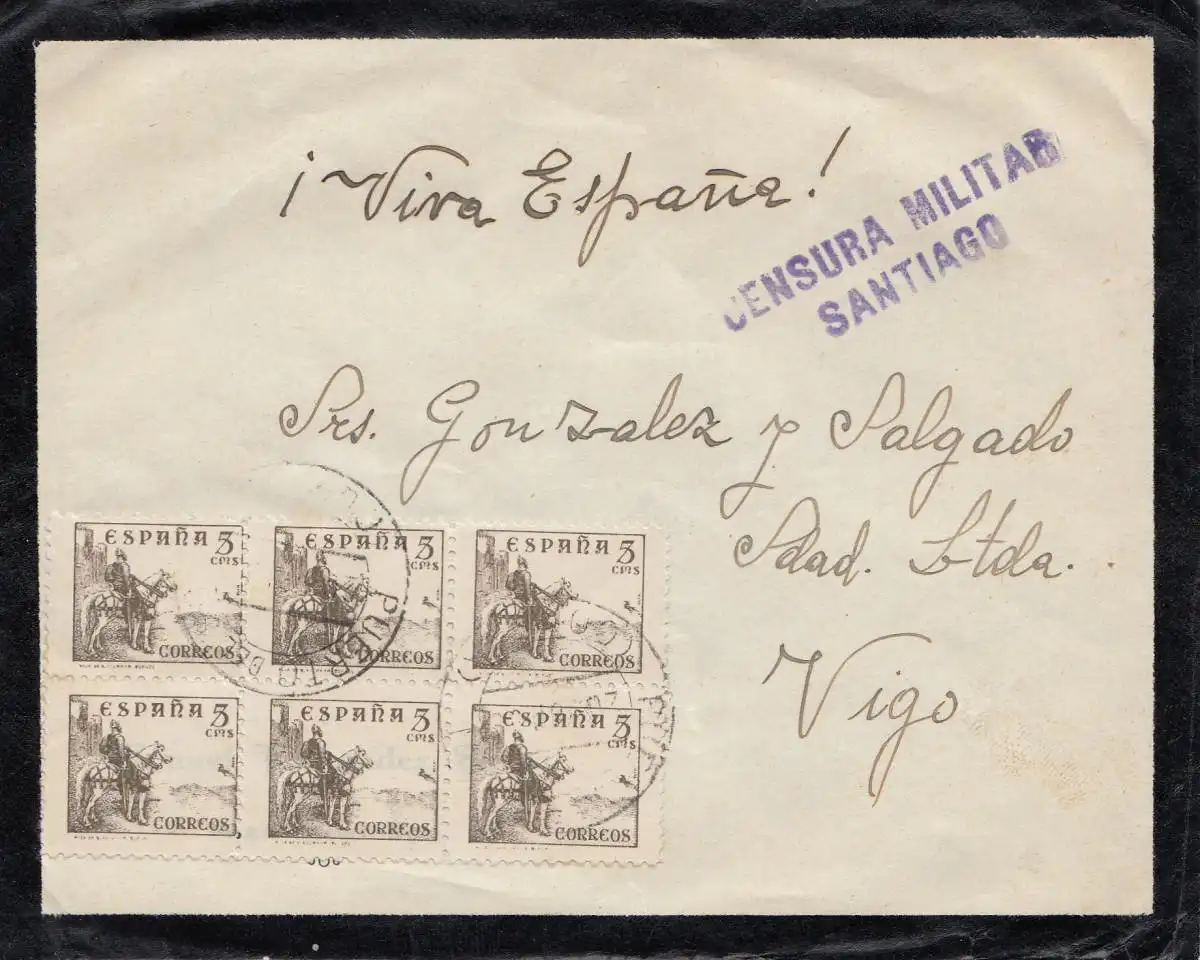 ¡Viva España!
CENSURA MILITAR
SANTIAGO
Srs. Gonzalez y Salgado
Sdad. Ltda.
Vigo
ESPAÑA 5 cms
CORREOS
ESPAÑA 5 cms
CORREOS
ESPAÑA 5 cms
CORREOS
ESPAÑA 5 cms
CORREOS
ESPAÑA 5 cms
CORREOS
ESPAÑA 5 cms
CORREOS